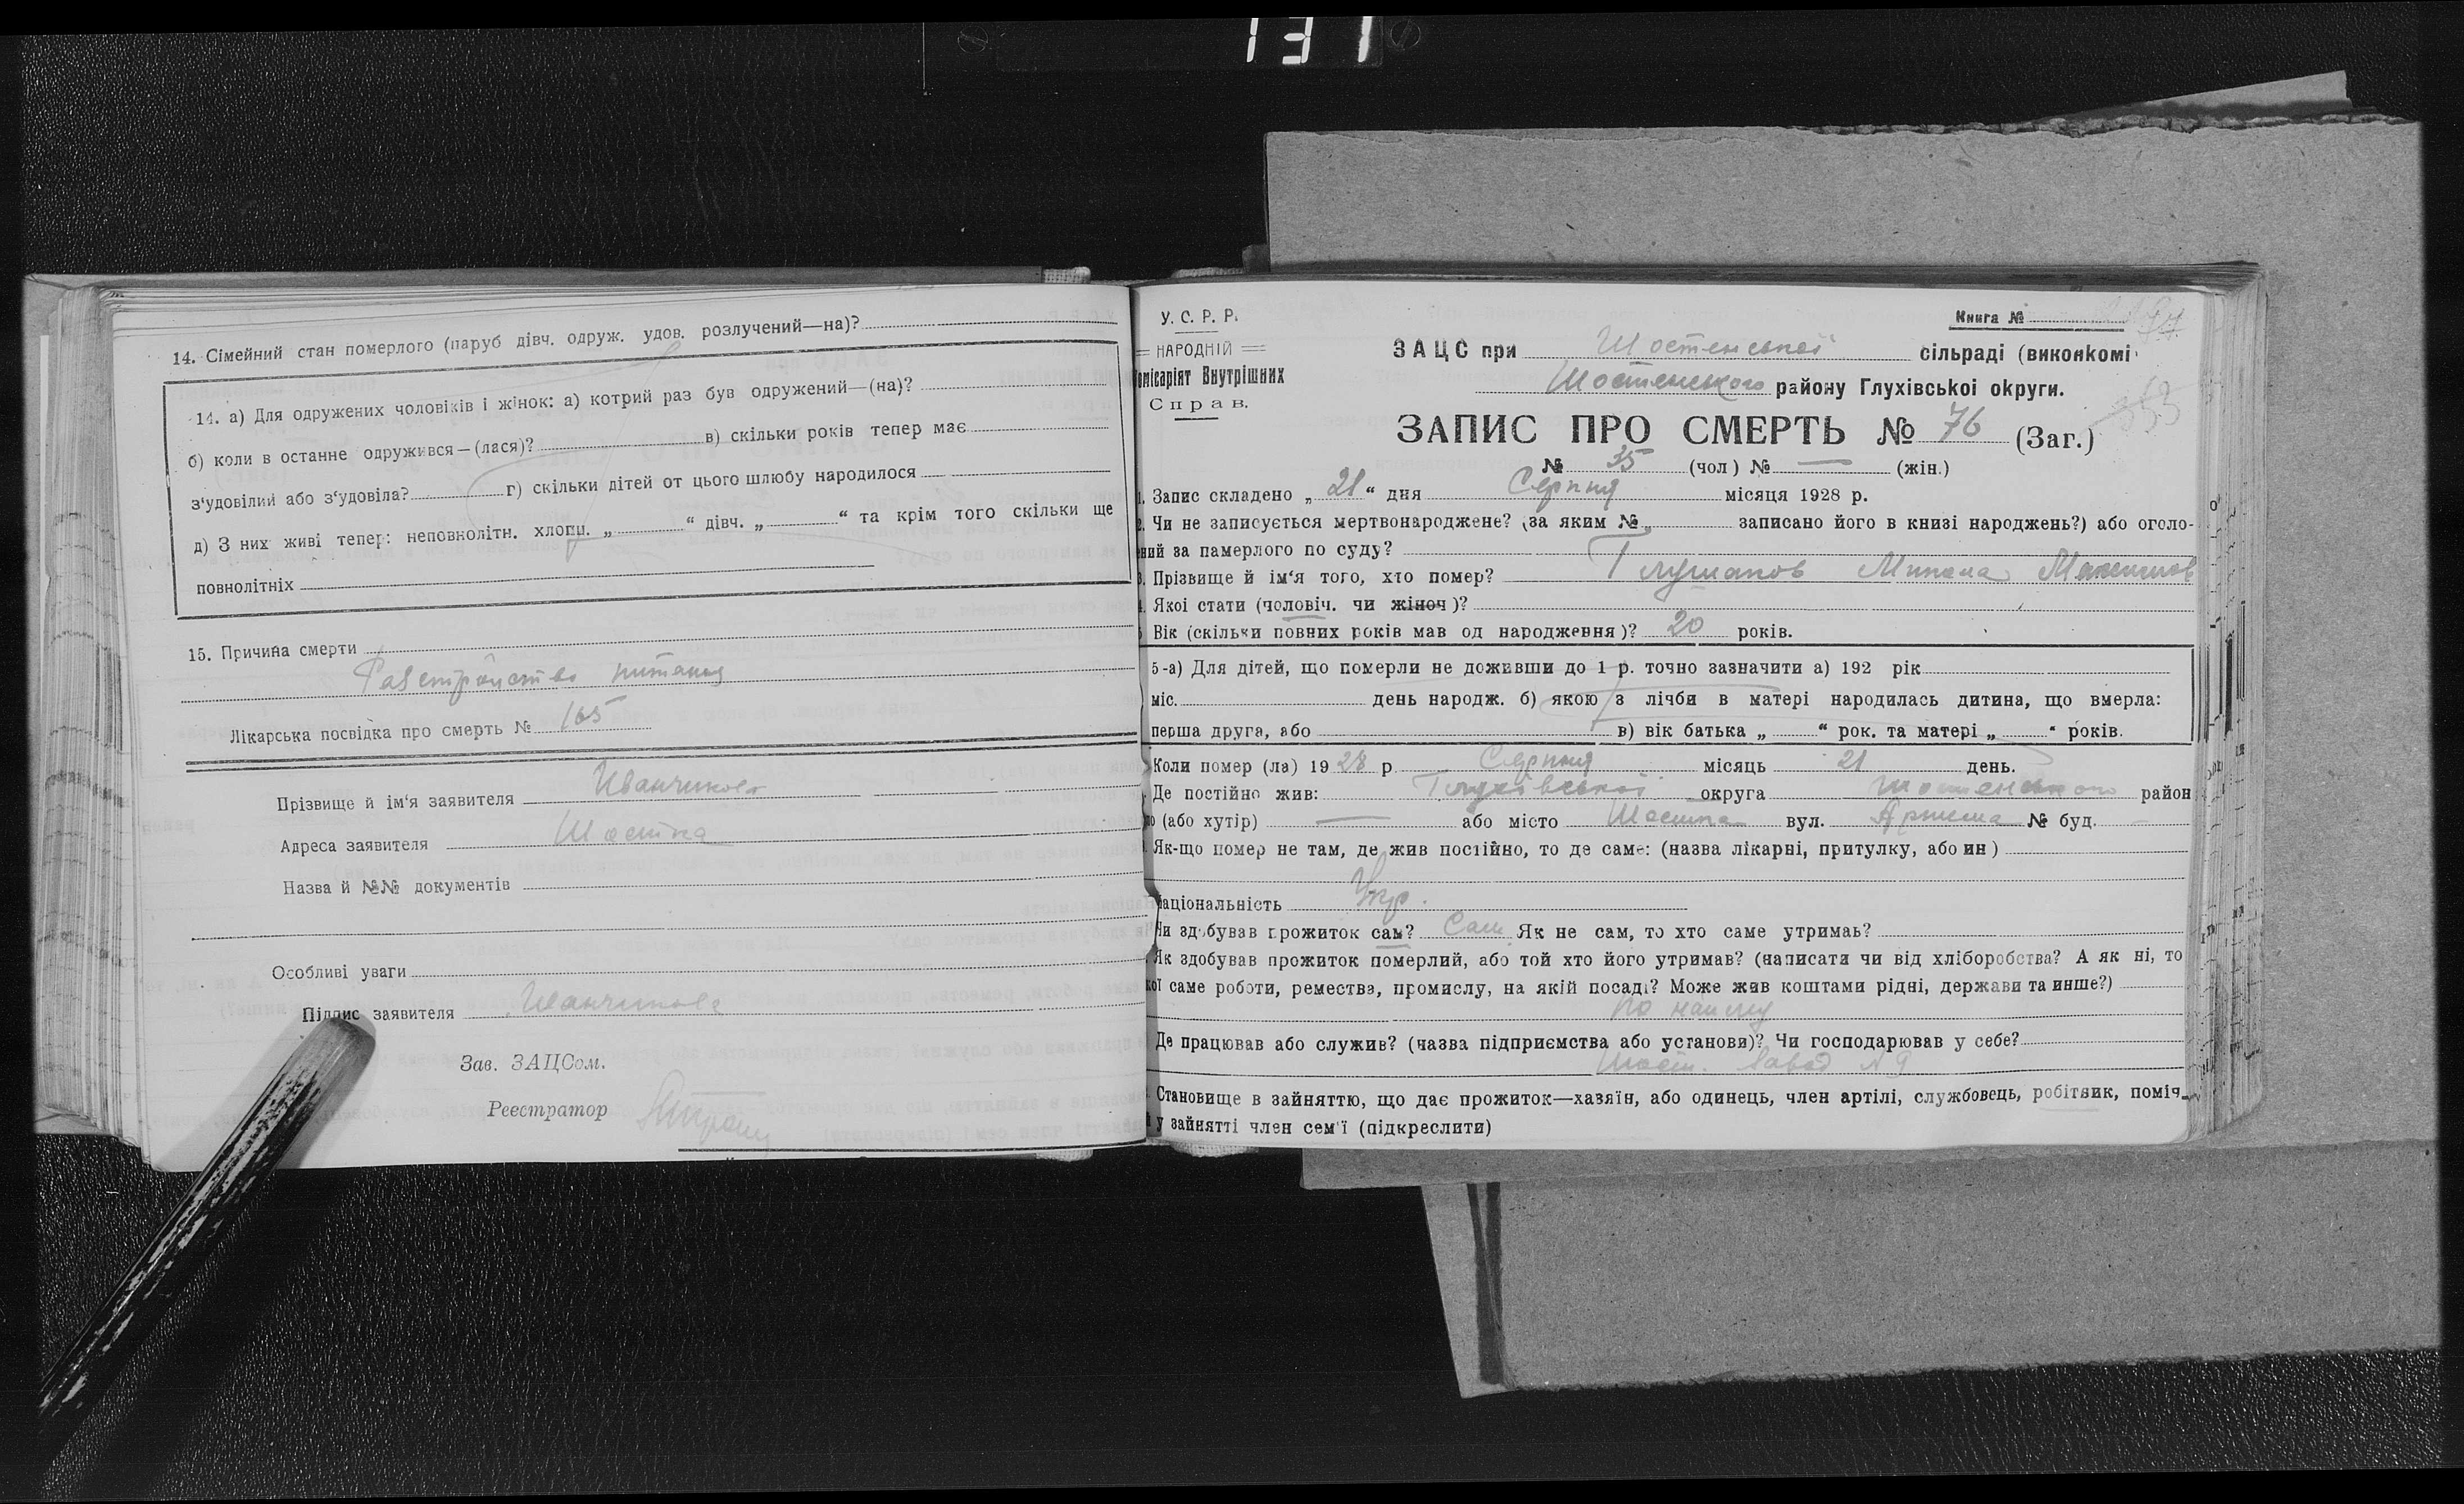 131
14. Сімейний стан померлого (паруб дівч. одруж. удов. розлучений—на)?
14. а) Для одружених чоловіків і жінок: а) котрий раз був одружений—(на)?
б) коли в останне одружився—(лася)? в) скільки років тепер має
з'удовілий або з'удовіла? г) скільки дітей от цього шлюбу народилося
д) З них живі тепер: неповнолітн. хлопц. „ “ дівч. „ “ та крім того скільки ще
повнолітніх
15. Причина смерти
Лікарська посвідка про смерть № 165
Прізвище й ім'я заявителя Иванчикова
Адреса заявителя Шостка
Назва й №№ документів
Особливі уваги
Підпис заявителя
Зав. ЗАЦСом.
Реєстратор
У. С. Р. Р.
НАРОДНІЙ
Комісаріят Внутрішних
Справ.
Книга №
ЗАЦС при Шостенської сільраді (виконкомі
Шостенського району Глухівської округи.
ЗАПИС ПРО СМЕРТЬ № 76 (Заг.)
353
№ 35 (чол) № — (жін.)
1. Запис складено „21“ дня Серпня місяця 1928 р.
2. Чи не записується мертвонароджене? (за яким № записано його в книзі народжень?) або оголо-
ний за памерлого по суду?
3. Прізвище й ім'я того, хто помер? Глушаков Микола
Якої стати (чоловіч. чи жіноч)?
Вік (скільки повних років мав од народження)? 20 років.
5-а) Для дітей, що померли не доживши до 1 р. точно зазначити а) 192 рік
міс. день народж. б) якою з лічби в матері народилась дитина, що вмерла:
перша друга, або в) вік батька „ “ рок. та матері „ “ років.
Коли помер (ла) 1928 р. Серпня місяць 21 день.
Де постійно жив: Глухівської округа Шостенського район
(або хутір) — або місто Шостка вул. Артема № буд. —
Як-що помер не там, де жив постійно, то де саме: (назва лікарні, притулку, або ин)
Національність Укр.
Чи здобував прожиток сам? Сам Як не сам, то хто саме утримав?
Як здобував прожиток померлий, або той хто його утримав? (написати чи від хліборобства? А як ні, то
кої саме роботи, ремества, промислу, на якій посаді? Може жив коштами рідні, держави та инше?)
По найму
Де працював або служив? (назва підприємства або установи)? Чи господарював у себе?
Шост. Завод № 9
Становище в зайняттю, що дає прожиток—хазяїн, або одинець, член артілі, службовець, робітник, поміч-
у зайнятті член сем'ї (підкреслити)